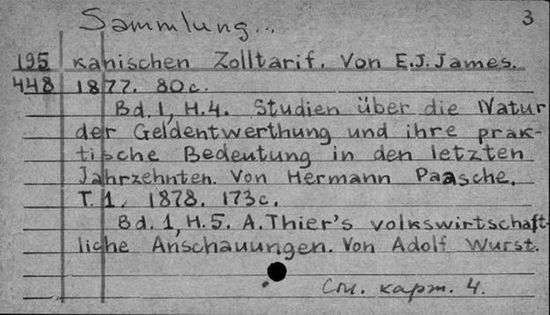 Sammlung... 3
195 kanischen Zolltarif. Von E.J. James.
448 1877. 80c.
Bd. 1, H.4. Studien über die Natur
der Geldentwerthung und ihre prak-
tische Bedeutung in den letzten
Jahrzehnten. Von Hermann Paasche.
T. 1. 1878. 173c.
Bd. 1, H.5. A. Thier's volkswirtschaft-
liche Anschauungen. Von Adolf Wurst.
См. карт. 4.